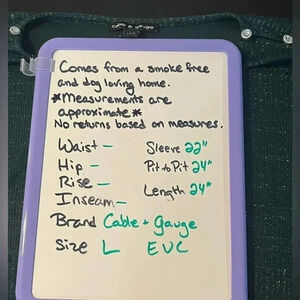 Comes from a smoke free
and dog loving home.
*Measurements are
approximate*
No returns based on measures.
Waist -
Hip -
Rise -
Inseam -
Sleeve 22"
Pit to Pit 24"
Length 24"
Brand Cable + Gauge
Size L EUC